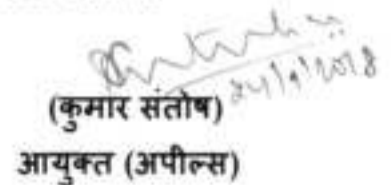 24/9/2018
(कुमार संतोष)
आयुक्त (अपील्स)